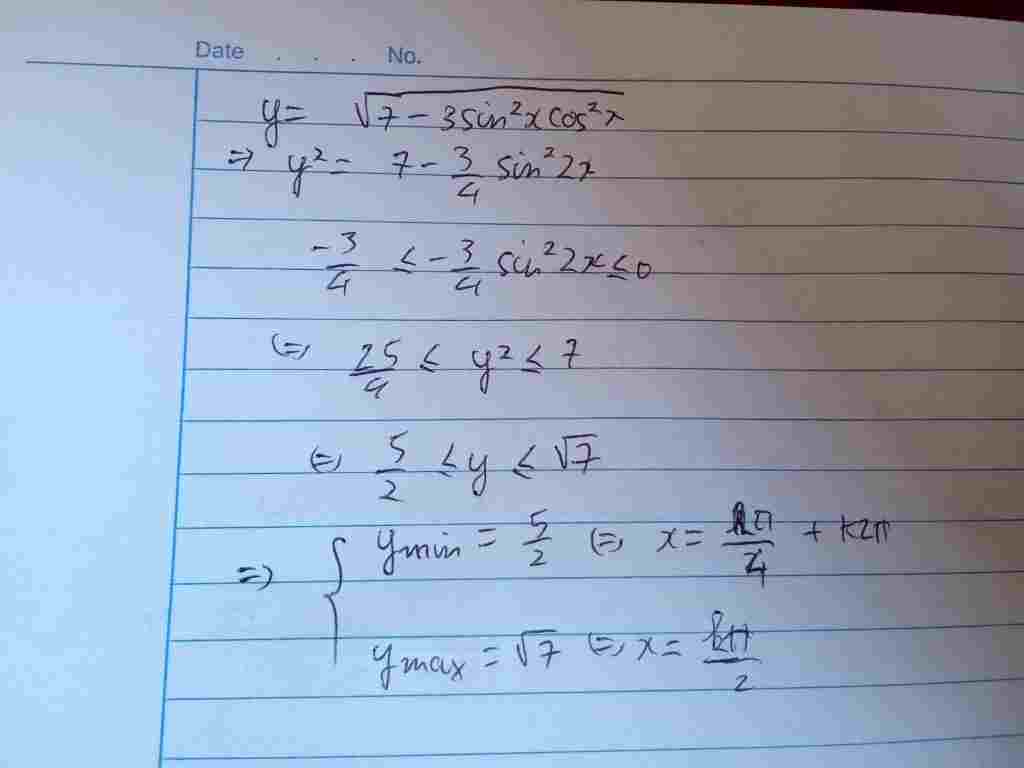 Date . . . No.
y= √7 - 3sin²xcos²x
=> y² = 7 - 3/4 sin²2x
-3/4 ≤ -3/4 sin²2x ≤ 0
(=, 25/4 ≤ y² ≤ 7
(=, 5/2 ≤ y ≤ √7
=> { ymin = 5/2 (=, x = π/4 + k2π
ymax = √7 (=, x = kπ/2